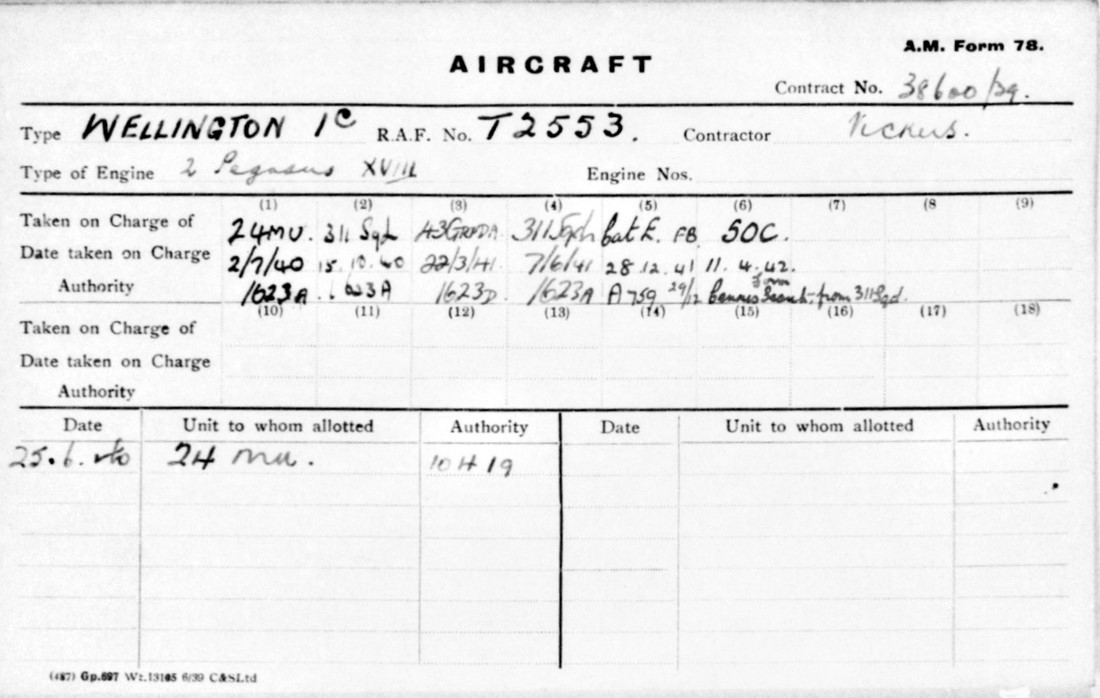 A.M. Form 78.
AIRCRAFT
Contract No. 38600/39.
Type WELLINGTON 1C R.A.F. No. T2553. Contractor Vickers.
Type of Engine 2 Pegasus XVIII Engine Nos.
(1) (2) (3) (4) (5) (6) (7) (8 (9)
Taken on Charge of 24MU. 311 Sqd 43GRPDA 311Sqdn Cat E. FB SOC.
Date taken on Charge 2/7/40 15.10.40 22/3/41 7/6/41 28.12.41 11.4.42.
Authority 1623A 1623A 1623D 1623A A759 29/12 Form from 311Sqd.
(10) (11) (12) (13) (14) (15) (16) (17) (18)
Taken on Charge of
Date taken on Charge
Authority
Date Unit to whom allotted Authority Date Unit to whom allotted Authority
25.6.40 24 MU. 10419
(487) Gp.697 Wt.13105 6/39 C&SLtd